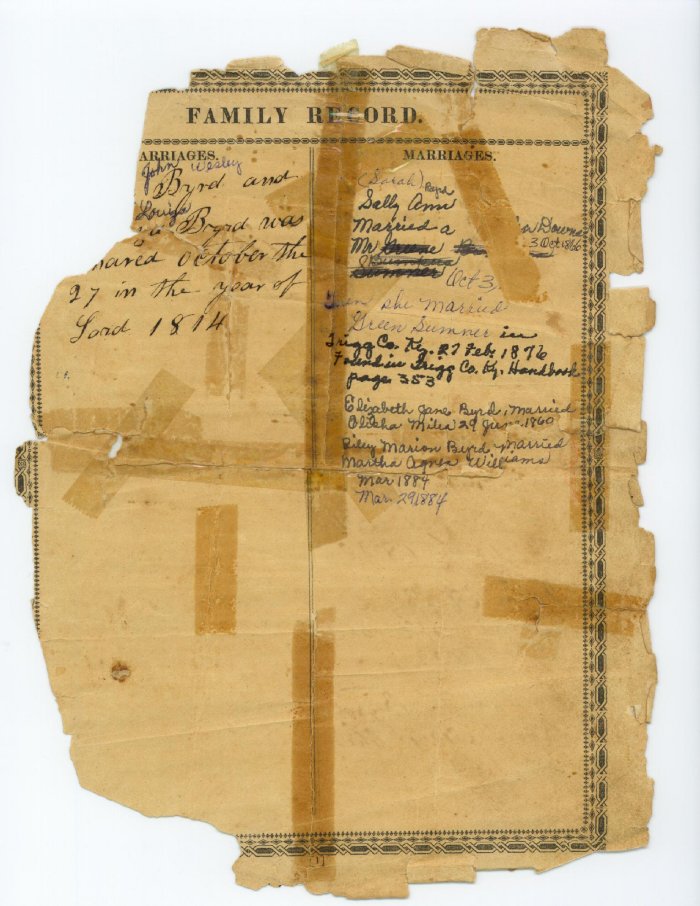 FAMILY RECORD.
ARRIAGES.
John Wesley
Byrd and
Louiza
Byrd was
mared october the
27 in the year of
Lord 1814
MARRIAGES.
(Sarah) Byrd
Sally Ann
Married a Downs
Mr 3 Oct 1866
Sumner Oct 3
Then she Married
Green Sumner in
Trigg Co. Ky. 27 Feb. 1876
Found in Trigg Co. Ky. Handbook
page 353
Elizabeth Jane Byrd, Married
Elisha Miles 29 June 1860
Riley Marion Byrd Married
Martha Agnes Williams
Mar 1884
Mar. 29 1884